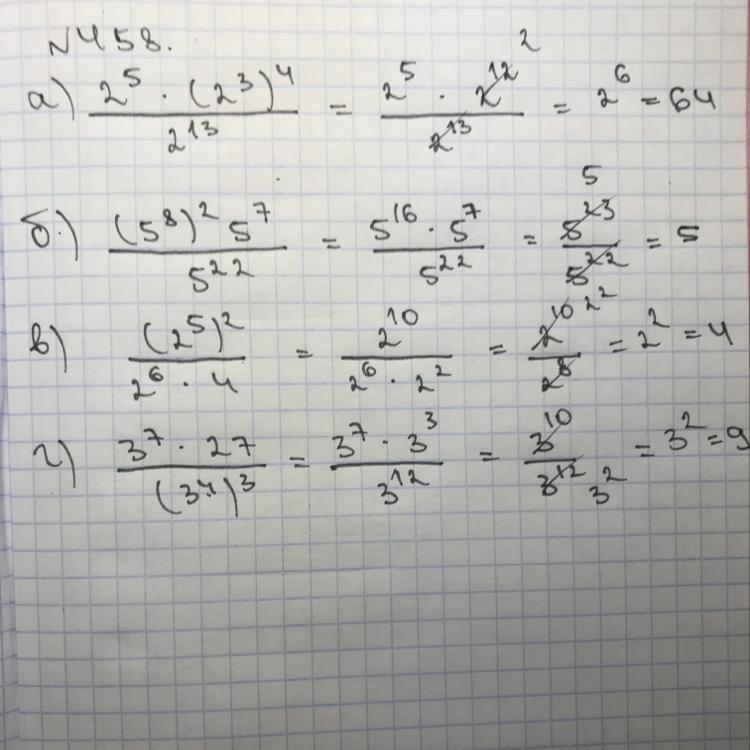 №458.
а) (2^5 · (2^3)^4) / 2^13 = (2^5 · 2^12 2) / 2^13 = 2^6 = 64
б) ((5^8)^2 5^7) / 5^22 = (5^16 · 5^7) / 5^22 = (5^23 5) / 5^22 = 5
в) (2^5)^2 / (2^6 · 4) = 2^10 / (2^6 · 2^2) = (2^10 2^2) / 2^8 = 2^2 = 4
г) (3^7 · 27) / (3^4)^3 = (3^7 · 3^3) / 3^12 = 3^10 / (3^12 3^2) = 3^2 = 9